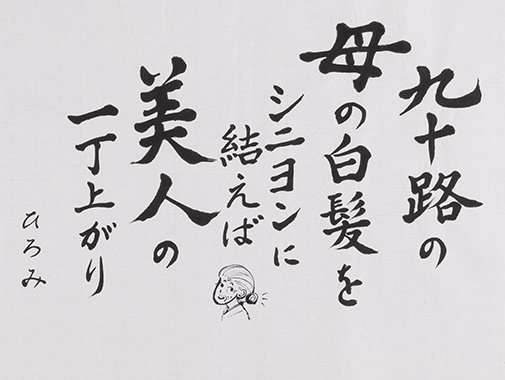 九十路の
母の白髪を
シニヨンに
結えば
美人の
一丁上がり
ひろみ